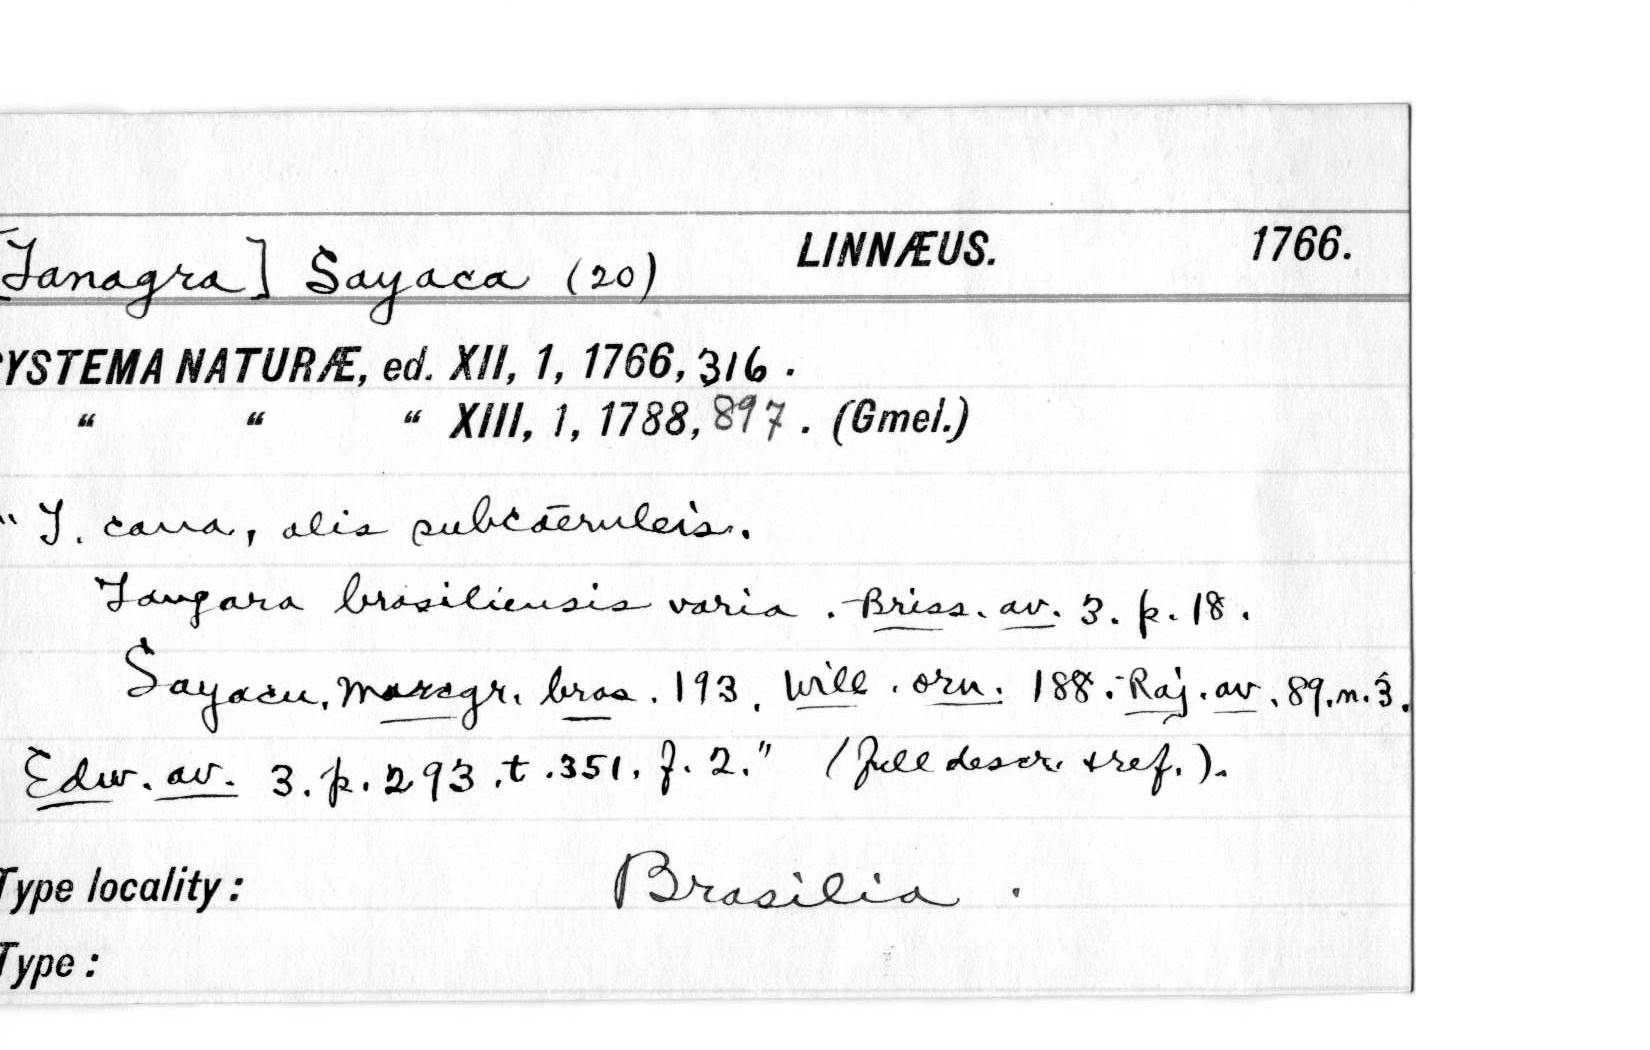 [Tanagra] Sayaca (20) LINNÆUS. 1766.
YSTEMA NATURÆ, ed. XII, 1, 1766, 316.
" " " XIII, 1, 1788, 897. (Gmel.)
" T. cana, alis subcaeruleis.
Tangara brasiliensis varia. Briss. av. 3. p. 18.
Sayacu, Marcgr. bras. 193. Will. orn. 188. Raj. av. 89. n. 3.
Edw. av. 3. p. 293. t. 351. f. 2." (full descr. & ref.).
Type locality: Brasilia.
Type: